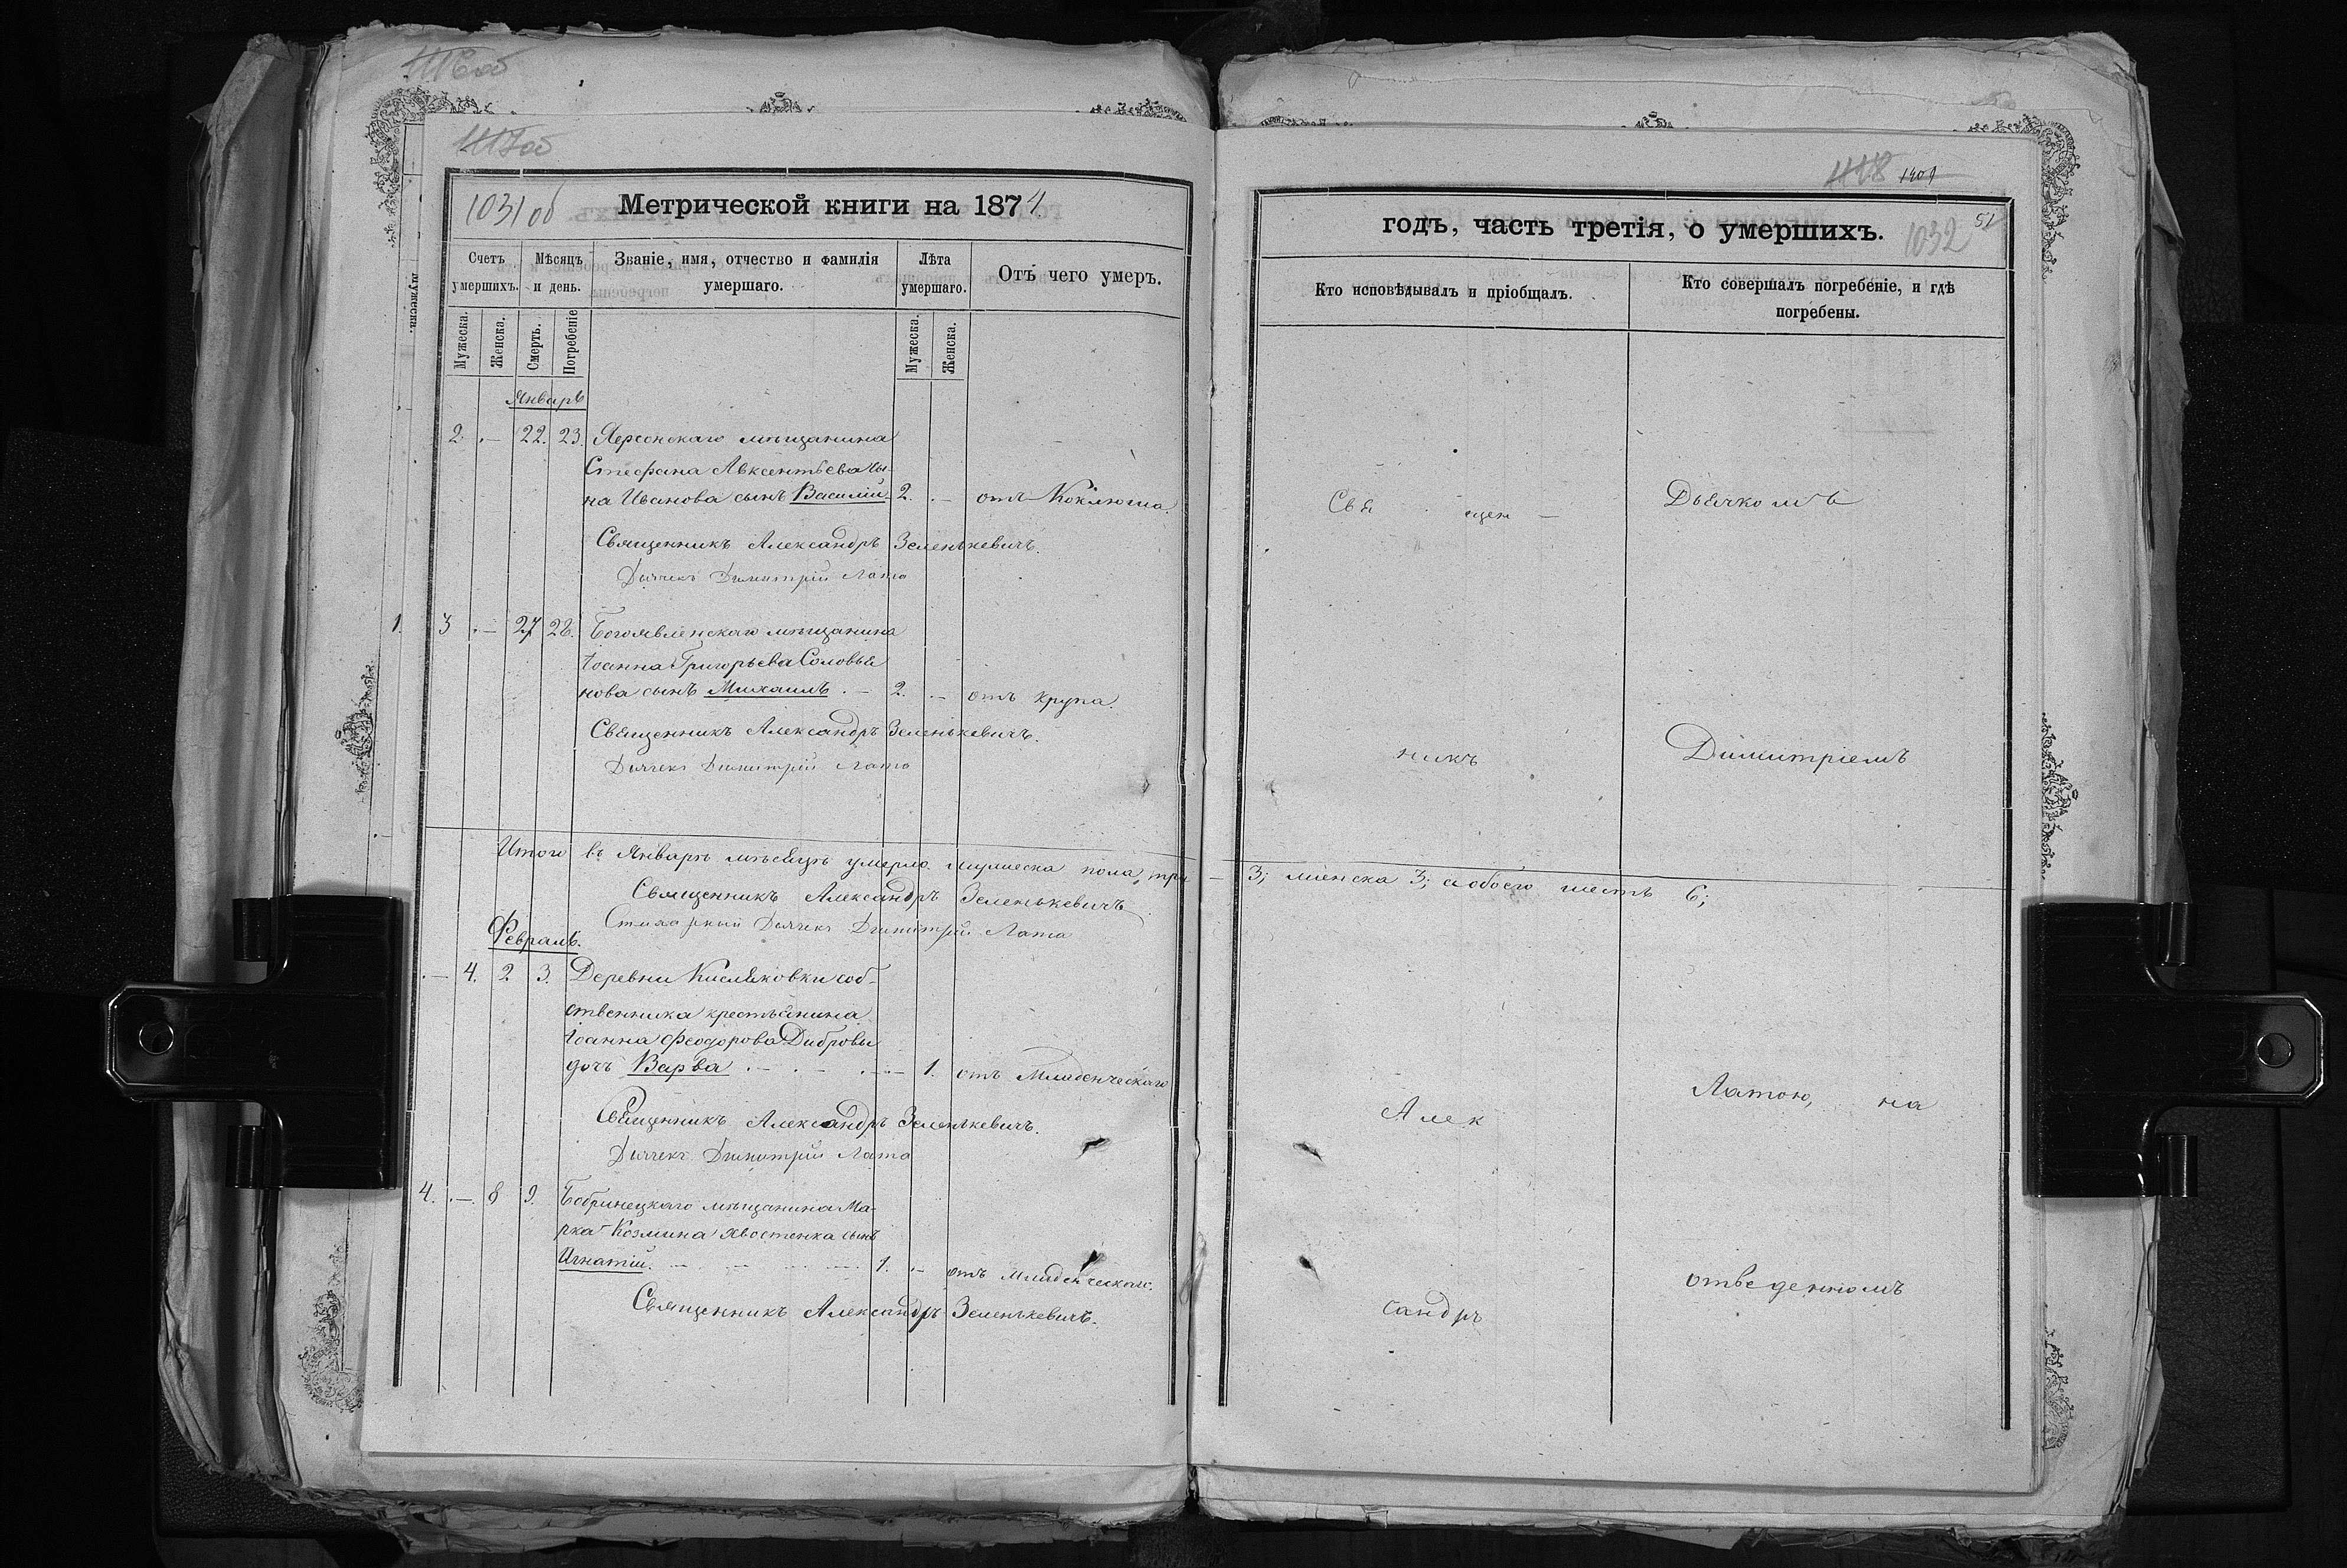 1117об
1031об
Метрической книги на 1874.
Счетъ умершихъ.
Мѣсяцъ и день.
Званіе, имя, отчество и фамилія умершаго.
Лѣта умершаго.
Отъ чего умеръ.
Мужеска.
Женска.
Смерть.
Погребеніе
Мужеска.
Женска.
Январь
2 . — 22. 23. Херсонскаго мѣщанина
Стефана Авксентьева сы-
на Иванова сынъ Василій. 2. . — отъ Коклюша.
Священникъ Александръ Зеленькевичъ.
Дьячекъ Димитрій Лата
3 . — 27 28. Богоявленскаго мѣщанина
Іоанна Григорьева Соловья
нова сынъ Михаилъ . — 2. . — отъ крупа.
Священникъ Александръ Зеленькевичъ.
Дьячекъ Димитрій Лата
Итого въ Январѣ мѣсяцѣ умерло мужеска пола, три — 3; женска 3; а обоего шесть 6;
Священникъ Александръ Зеленькевичъ
Стихарный Дьячекъ Димитрій Лата
Февраль.
. — 4. 2 3. Деревни Кисляковки соб-
ственника крестьянина
Іоанна Феодорова Дибровы
дочь Варва . — . — . — 1. отъ Младенческаго
Священникъ Александръ Зеленькевичъ.
Дьячекъ Димитрій Лата
4. . — 8 9. Бобринецкаго мѣщанина Ма-
рка Козмина Хвостенка сынъ
Игнатій. — 1. . — отъ младенческаго.
Священникъ Александръ Зеленькевичъ.
1118 1409
годъ, часть третія, о умершихъ.
1032
51
Кто исповѣдывалъ и пріобщалъ.
Кто совершалъ погребеніе, и гдѣ погребены.
Свя щен —
Дьячкомъ
никъ
Димитріемъ
Алек
Латою, на
сандръ
отведенномъ
мужеска.
1.